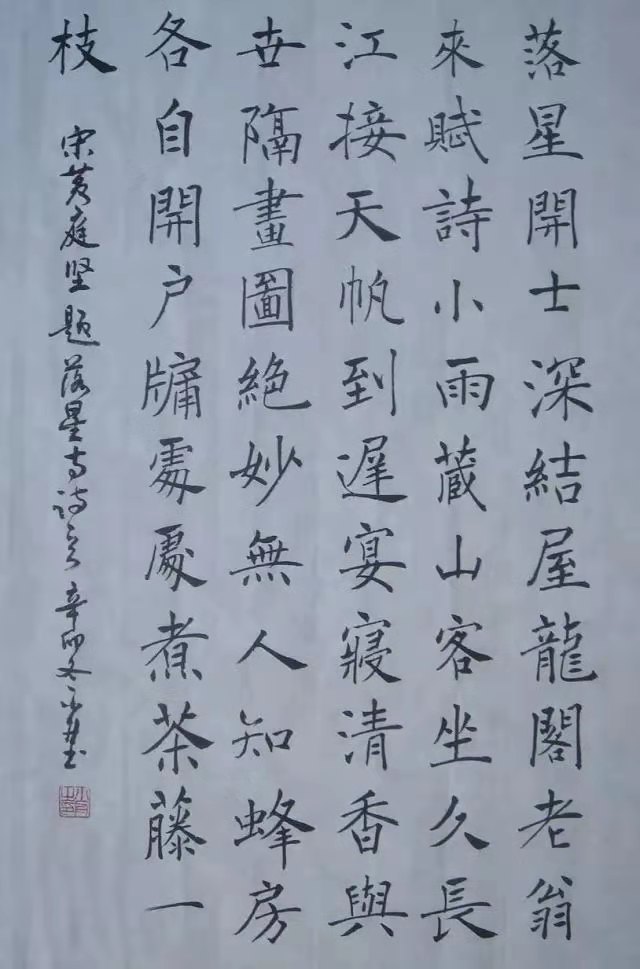 落星開士深結屋龍閣老翁
來賦詩小雨蔵山客坐久長
江接天帆到遲宴寢清香與
世隔畫圖絕妙無人知蜂房
各自開户牖處處煮茶藤一
枝
宋黄庭坚题落星寺诗 辛卯冬